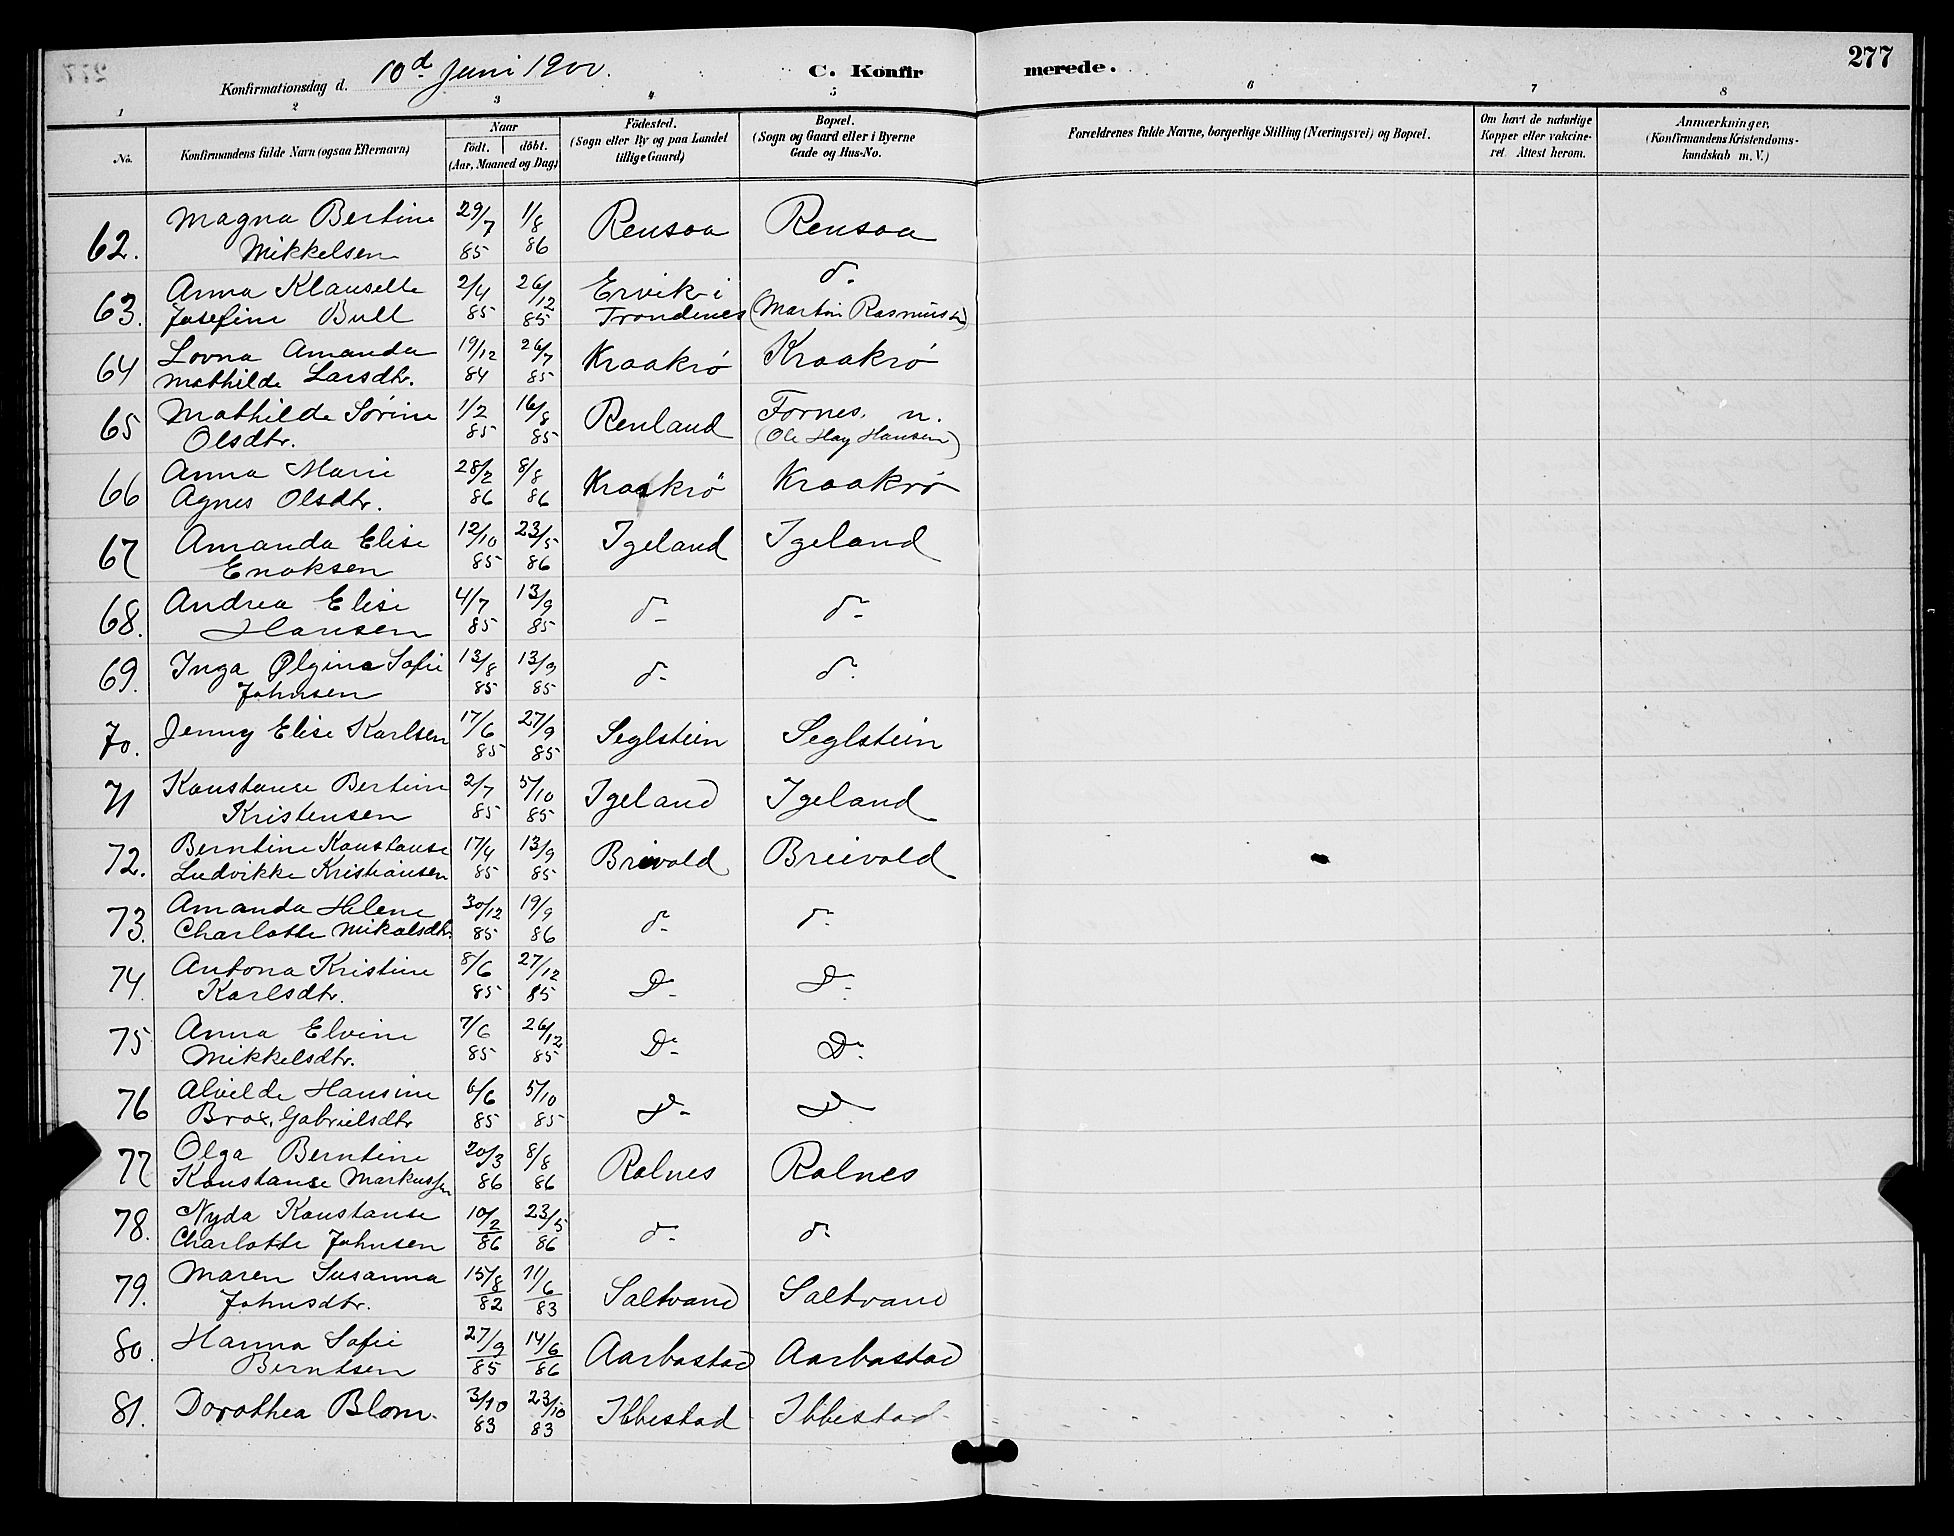 277
Konfirmationsdag d. 10d Juni 1900.
C. Konfirmerede.
1 2 3 4 5 6 7 8
No.
Konfirmandens fulde Navn (ogsaa Efternavn)
Naar
født. døbt.
(Aar, Maaned og Dag)
Fødested.
(Sogn eller By og paa Landet
tillige Gaard)
Bopæl.
(Sogn og Gaard eller i Byerne
Gade og Hus-No.
Forældrenes fulde Navne, borgerlige Stilling (Næringsvei) og Bopæl.
Om havt de naturlige
Kopper eller vakcine-
ret. Attest herom.
Anmærkninger,
(Konfirmandens Kristendoms-
kundskab m. V.)
62. Magna Bertine 29/7 1/8 Rensaa Rensaa
Mikkelsen 85 86
63. Anna Klauselle 2/4 26/12 Ervik i d.
Josefine Bull 85 85 Trondenes (Martin Rasmussen)
64 Lovna Amanda 19/12 26/7 Kraakrø Kraakrø
Mathilde Larsdtr. 84 85
65 Mathilde Sørine 1/2 16/8 Renland Fornes, n.
Olsdtr. 85 85 (Ole Hay Hansen)
66 Anna Marie 28/2 8/8 Kraakrø Kraakrø
Agnes Olsdtr. 86 86
67 Amanda Elise 12/10 23/5 Igeland Igeland
Enoksen 85 86
68. Andrea Elise 4/7 13/9 d. d.
Hansen 85 85
69. Inga Ølgina Sofie 13/8 13/9 d. d.
Johnsen 85 85
70. Jenny Elise Karlsen 17/6 27/9 Seglstein Seglstein
85 85
71 Konstanse Bertine 2/7 5/10 Igeland Igeland
Kristensen 85 85
72. Berntine Konstanse 17/4 13/9 Breivold Breivold
Ludvikke Kristiansen 85 85
73. Amanda Helene 30/12 19/9 d. d.
Charlotte Mikalsdtr. 85 86
74. Antona Kristine 8/6 27/12 D. D.
Karlsdtr. 85 85
75 Anna Elvine 7/6 26/12 D. D.
Mikkelsdtr. 85 85
76 Alvilde Hansine 6/6 5/10 D. D.
Brox, Gabrielsdtr 85 85
77 Olga Berntine 20/3 8/8 Rolnes Rolnes
Konstanse Markussen 86 86
78. Nyda Konstanse 10/2 23/5 d. d.
Charlotte Johnsen 86 86
79. Maren Susanna 15/8 11/6 Saltvand Saltvand
Johnsdtr. 82 83
80. Hanna Sofie 27/9 14/6 Aarbostad Aarbostad
Berntsen 85 86
81. Dorothea Blom. 3/10 23/10 Ibbestad Ibbestad
83 83